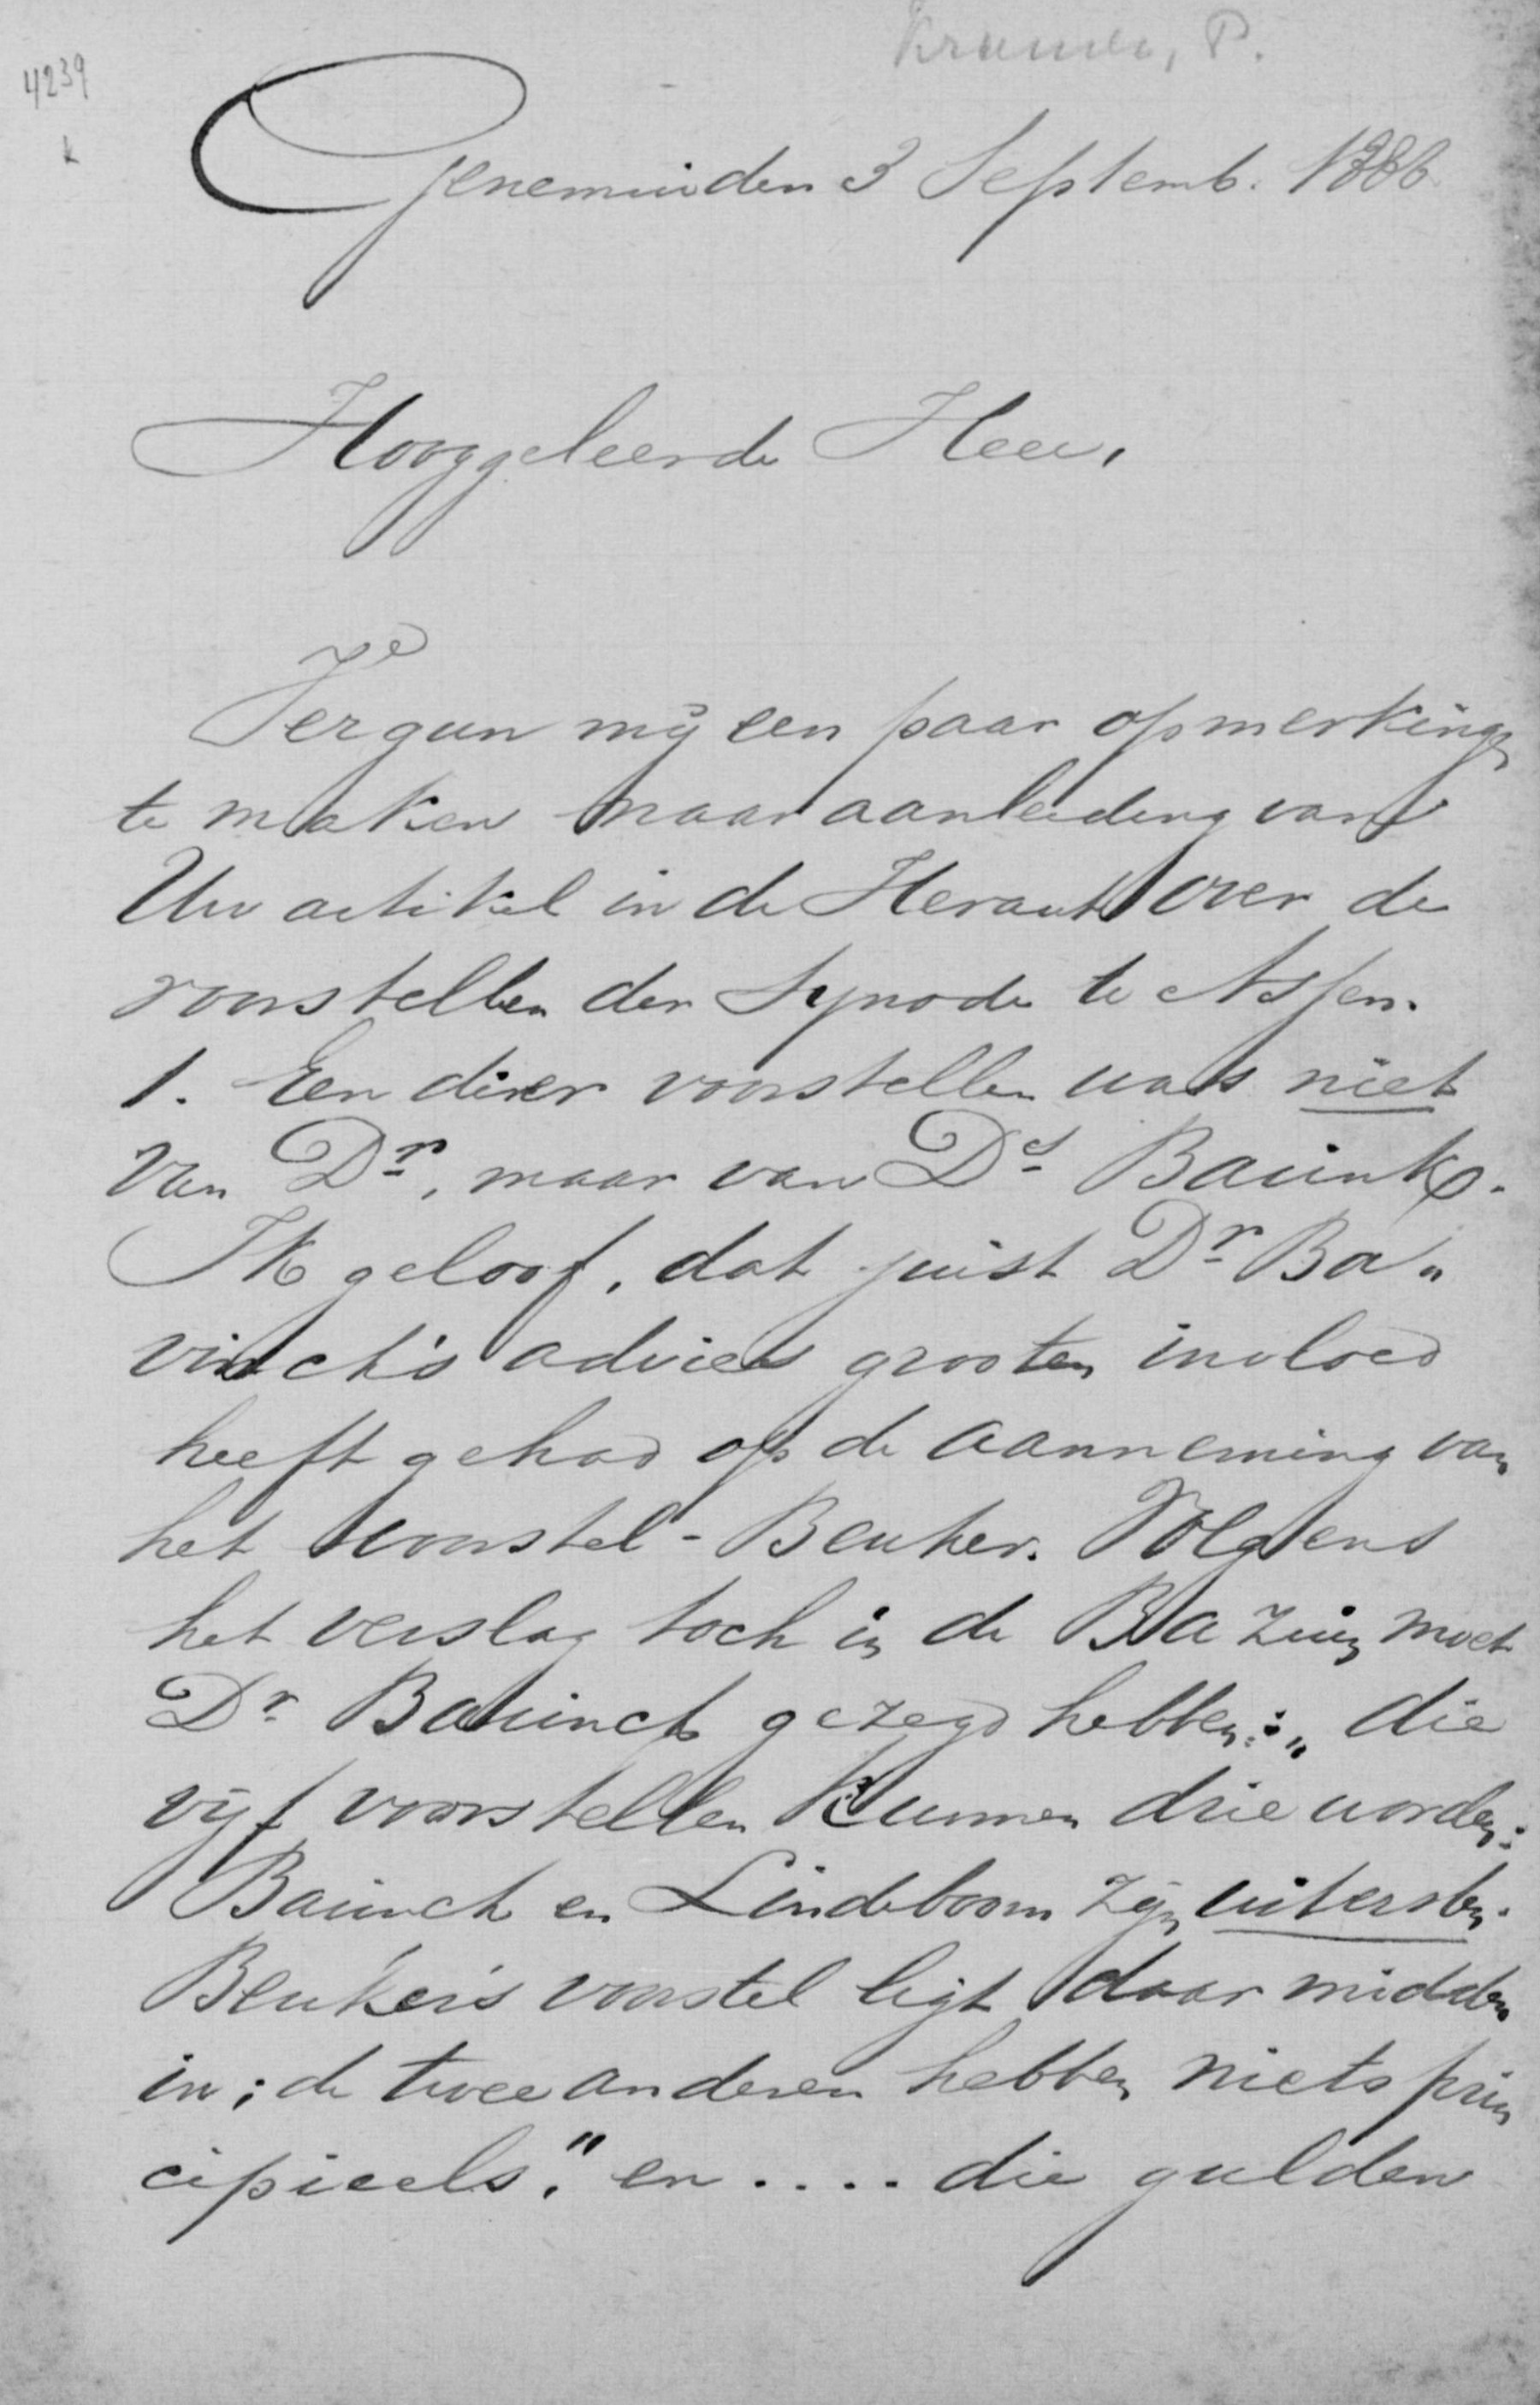 Kramer, P.
4239
k
Genemuiden 3 Septemb. 1888
Hooggeleerde Heer,
Vergun mij een paar opmerkingen
te maken naar aanleiding van
Uw artikel in de Heraut over de
voorstellen der Synode te Assen.
1. Een dier voorstellen was niet
van Dr, maar van Ds Bavink.
Ik geloof, dat juist Dr Ba„
vinck's advies grooten invloed
heeft gehad op de aanneming van
het voorstel-Beuker. Volgens
het verslag toch in de Bazuin moet
Dr Bavinck gezegd hebben: „die
vijf voorstellen kunnen drie worden:
Bavinck en Lindeboom zijn uitersten.
Beuker's voorstel ligt daar midden
in; de twee anderen hebben niets prin
cipieels." en .... die gulden